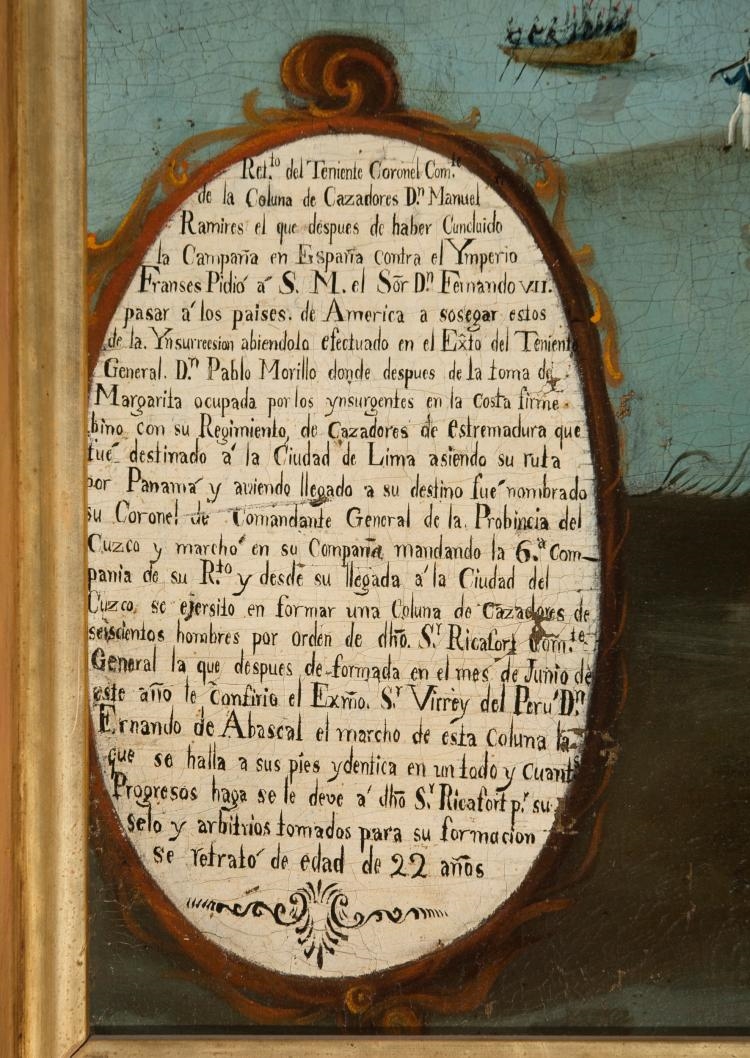 Ret.to del Teniente Coronel Com.te
de la Coluna de Cazadores D.n Manuel
Ramires el que despues de haber Cuncluido
la Campaña en España contra el Ymperio
Franses Pidió á S. M. el Sõr D.n Fernando VII.
pasar á los paises. de America a sosegar estos
de la. Ynsurreesion abiendolo efectuado en el Exto del Teniente
General. D.n Pablo Morillo donde despues de la toma de
Margarita ocupada por los ynsurgentes en la Costa firme
bino con su Regimiento, de Cazadores de estremadura que
fué destinado á la Ciudad de Lima asiendo su ruta
por Panamá y aviendo llegado a su destino fué nombrado
su Coronel de Comandante General de la. Probincia del
Cuzco y marchó en su Compañia mandando la 6.a Com-
pania de su R.to y desde su llegada á la Ciudad del
Cuzco, se ejersito en formar una Coluna de Cazadores de
seiscientos hombres por orden de dho. S.r Ricafort Com.te
General la que despues de formada en el mes de Junio de
este año le confirio el Exmo. S.r Virrey del Peru D.n
Ernando de Abascal el marcho de esta Coluna la
que se halla a sus pies ydentica en un todo y Cuantos
Progresos haga se le deve á dho S.r Ricafort p.r su
selo y arbitrios tomados para su formacion
se retrató de edad de 22 años